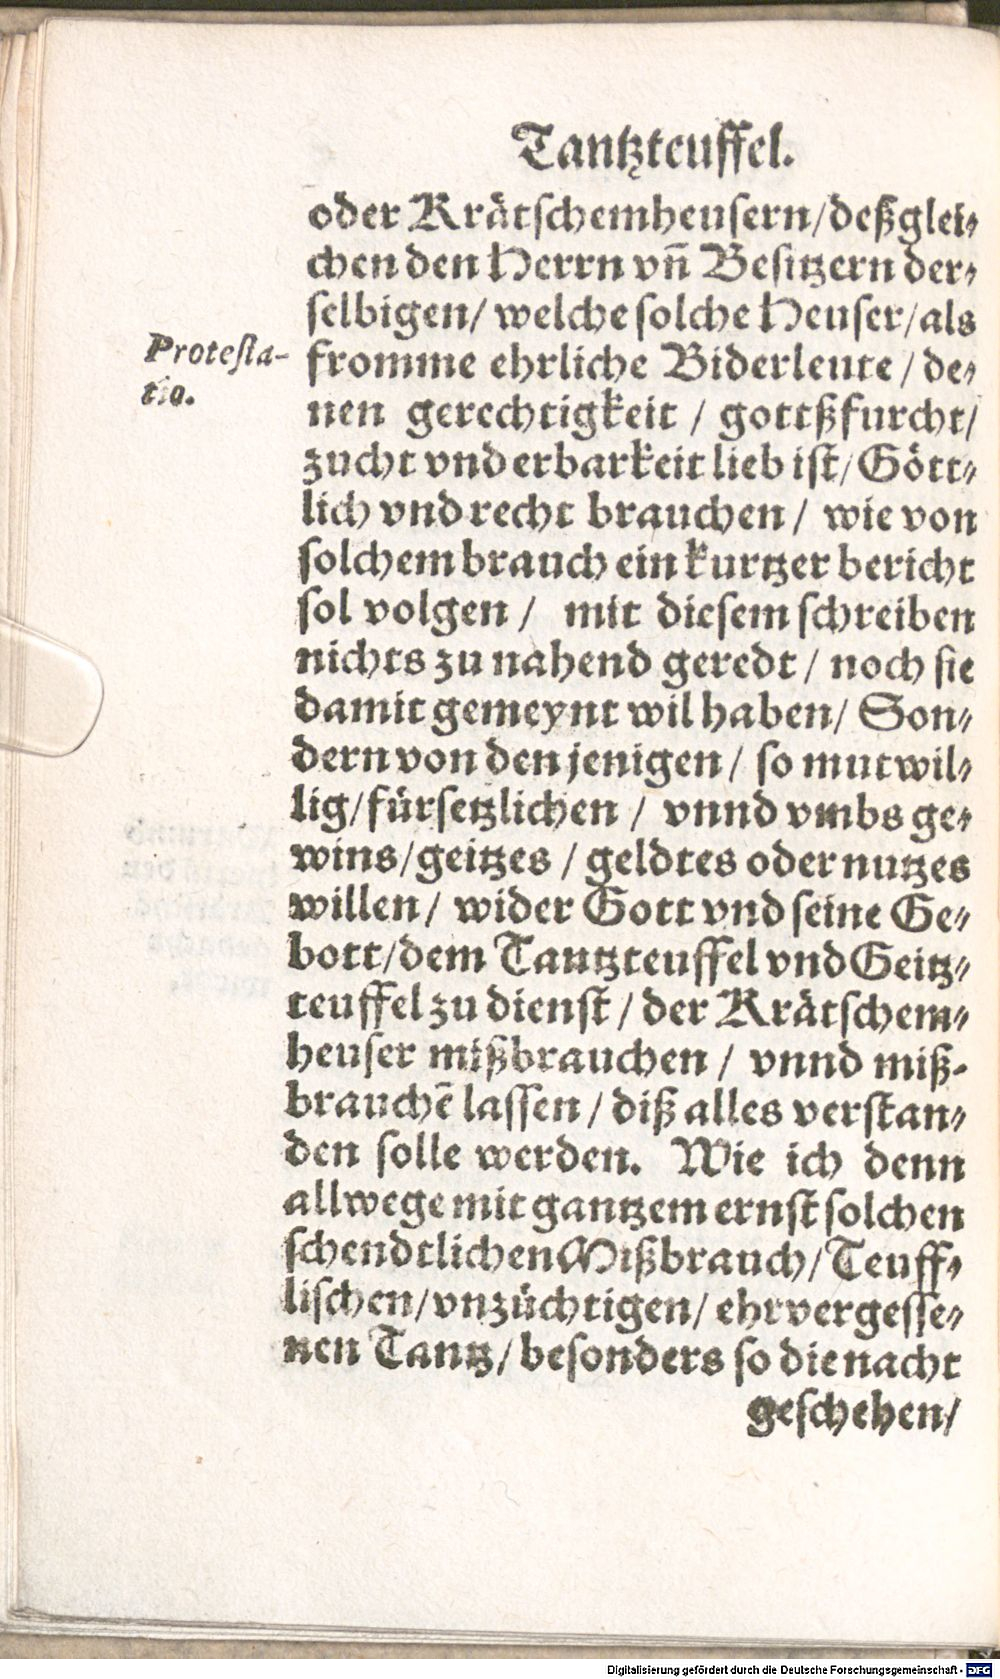 Tantzteuffel.
oder Krätschemheusern/deßglei⸗
chen den Herrn vñ Besitzern der⸗
selbigen/ welche solche Heuser/als
Protesta-
tio.
fromme ehrliche Biderleute / de⸗
nen gerechtigkeit / gottßfurcht/
zucht vnd erbarkeit lieb ist/ Gött⸗
lich vnd recht brauchen / wie von
solchem brauch ein kurtzer bericht
sol volgen / mit diesem schreiben
nichts zu nahend geredt / noch sie
damit gemeynt wil haben/ Son⸗
dern von den jenigen / so mutwil⸗
lig/fürsetzlichen / vnnd vmbs ge⸗
wins/geitzes / geldtes oder nutzes
willen / wider Gott vnd seine Ge⸗
bott/dem Tantzteuffel vnd Geitz⸗
teuffel zu dienst / der Krätschem⸗
heuser mißbrauchen / vnnd miß-
brauchē lassen / diß alles verstan⸗
den solle werden. Wie ich denn
allwege mit gantzem ernst solchen
schendtlichen Mißbrauch/ Teuff⸗
lischen/vnzüchtigen/ ehrvergesse⸗
nen Tantz/ besonders so die nacht
geschehen/
Digitalisierung gefördert durch die Deutsche Forschungsgemeinschaft - DFG